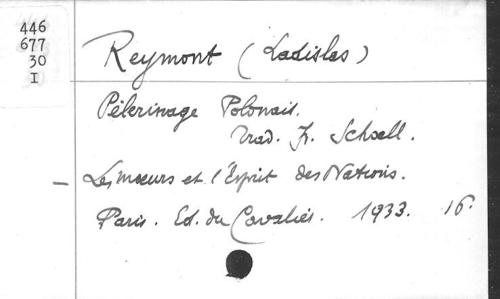 446
677
30
I
Reymont (Ladislas)
Pélerinage Polonais.
Trad. Fr. Schoell.
— Les Mœurs et l'Esprit des Nations.
Paris. Ed. du Cavalier. 1933. 16.